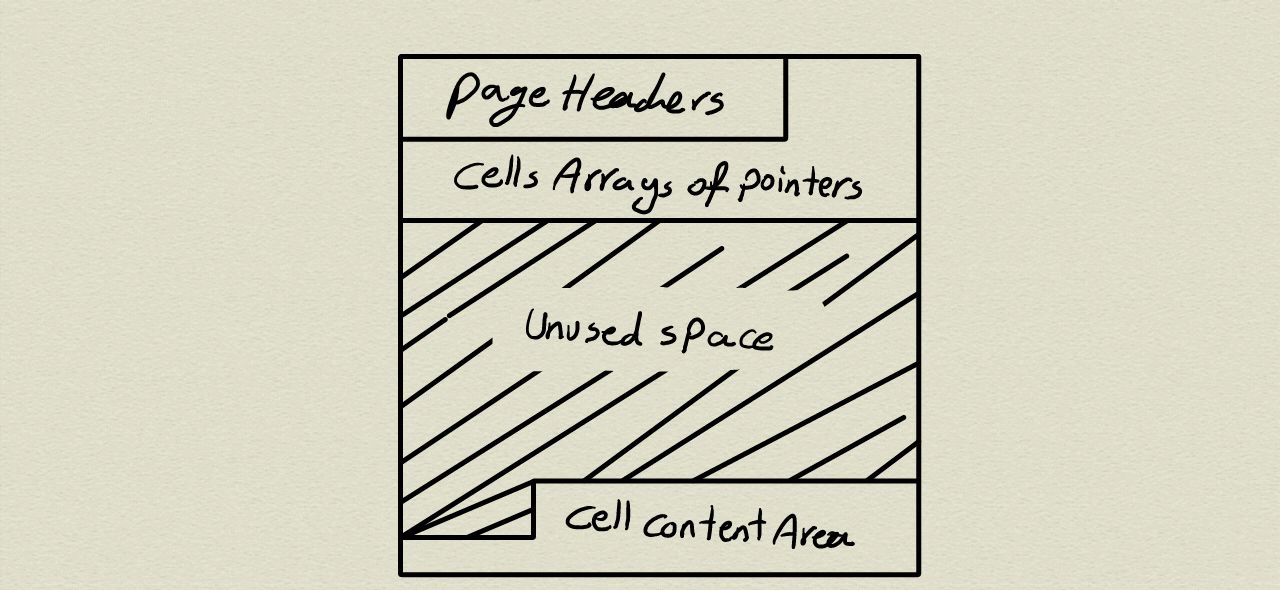 Page Headers
Cells Arrays of pointers
Unused space
Cell content Area